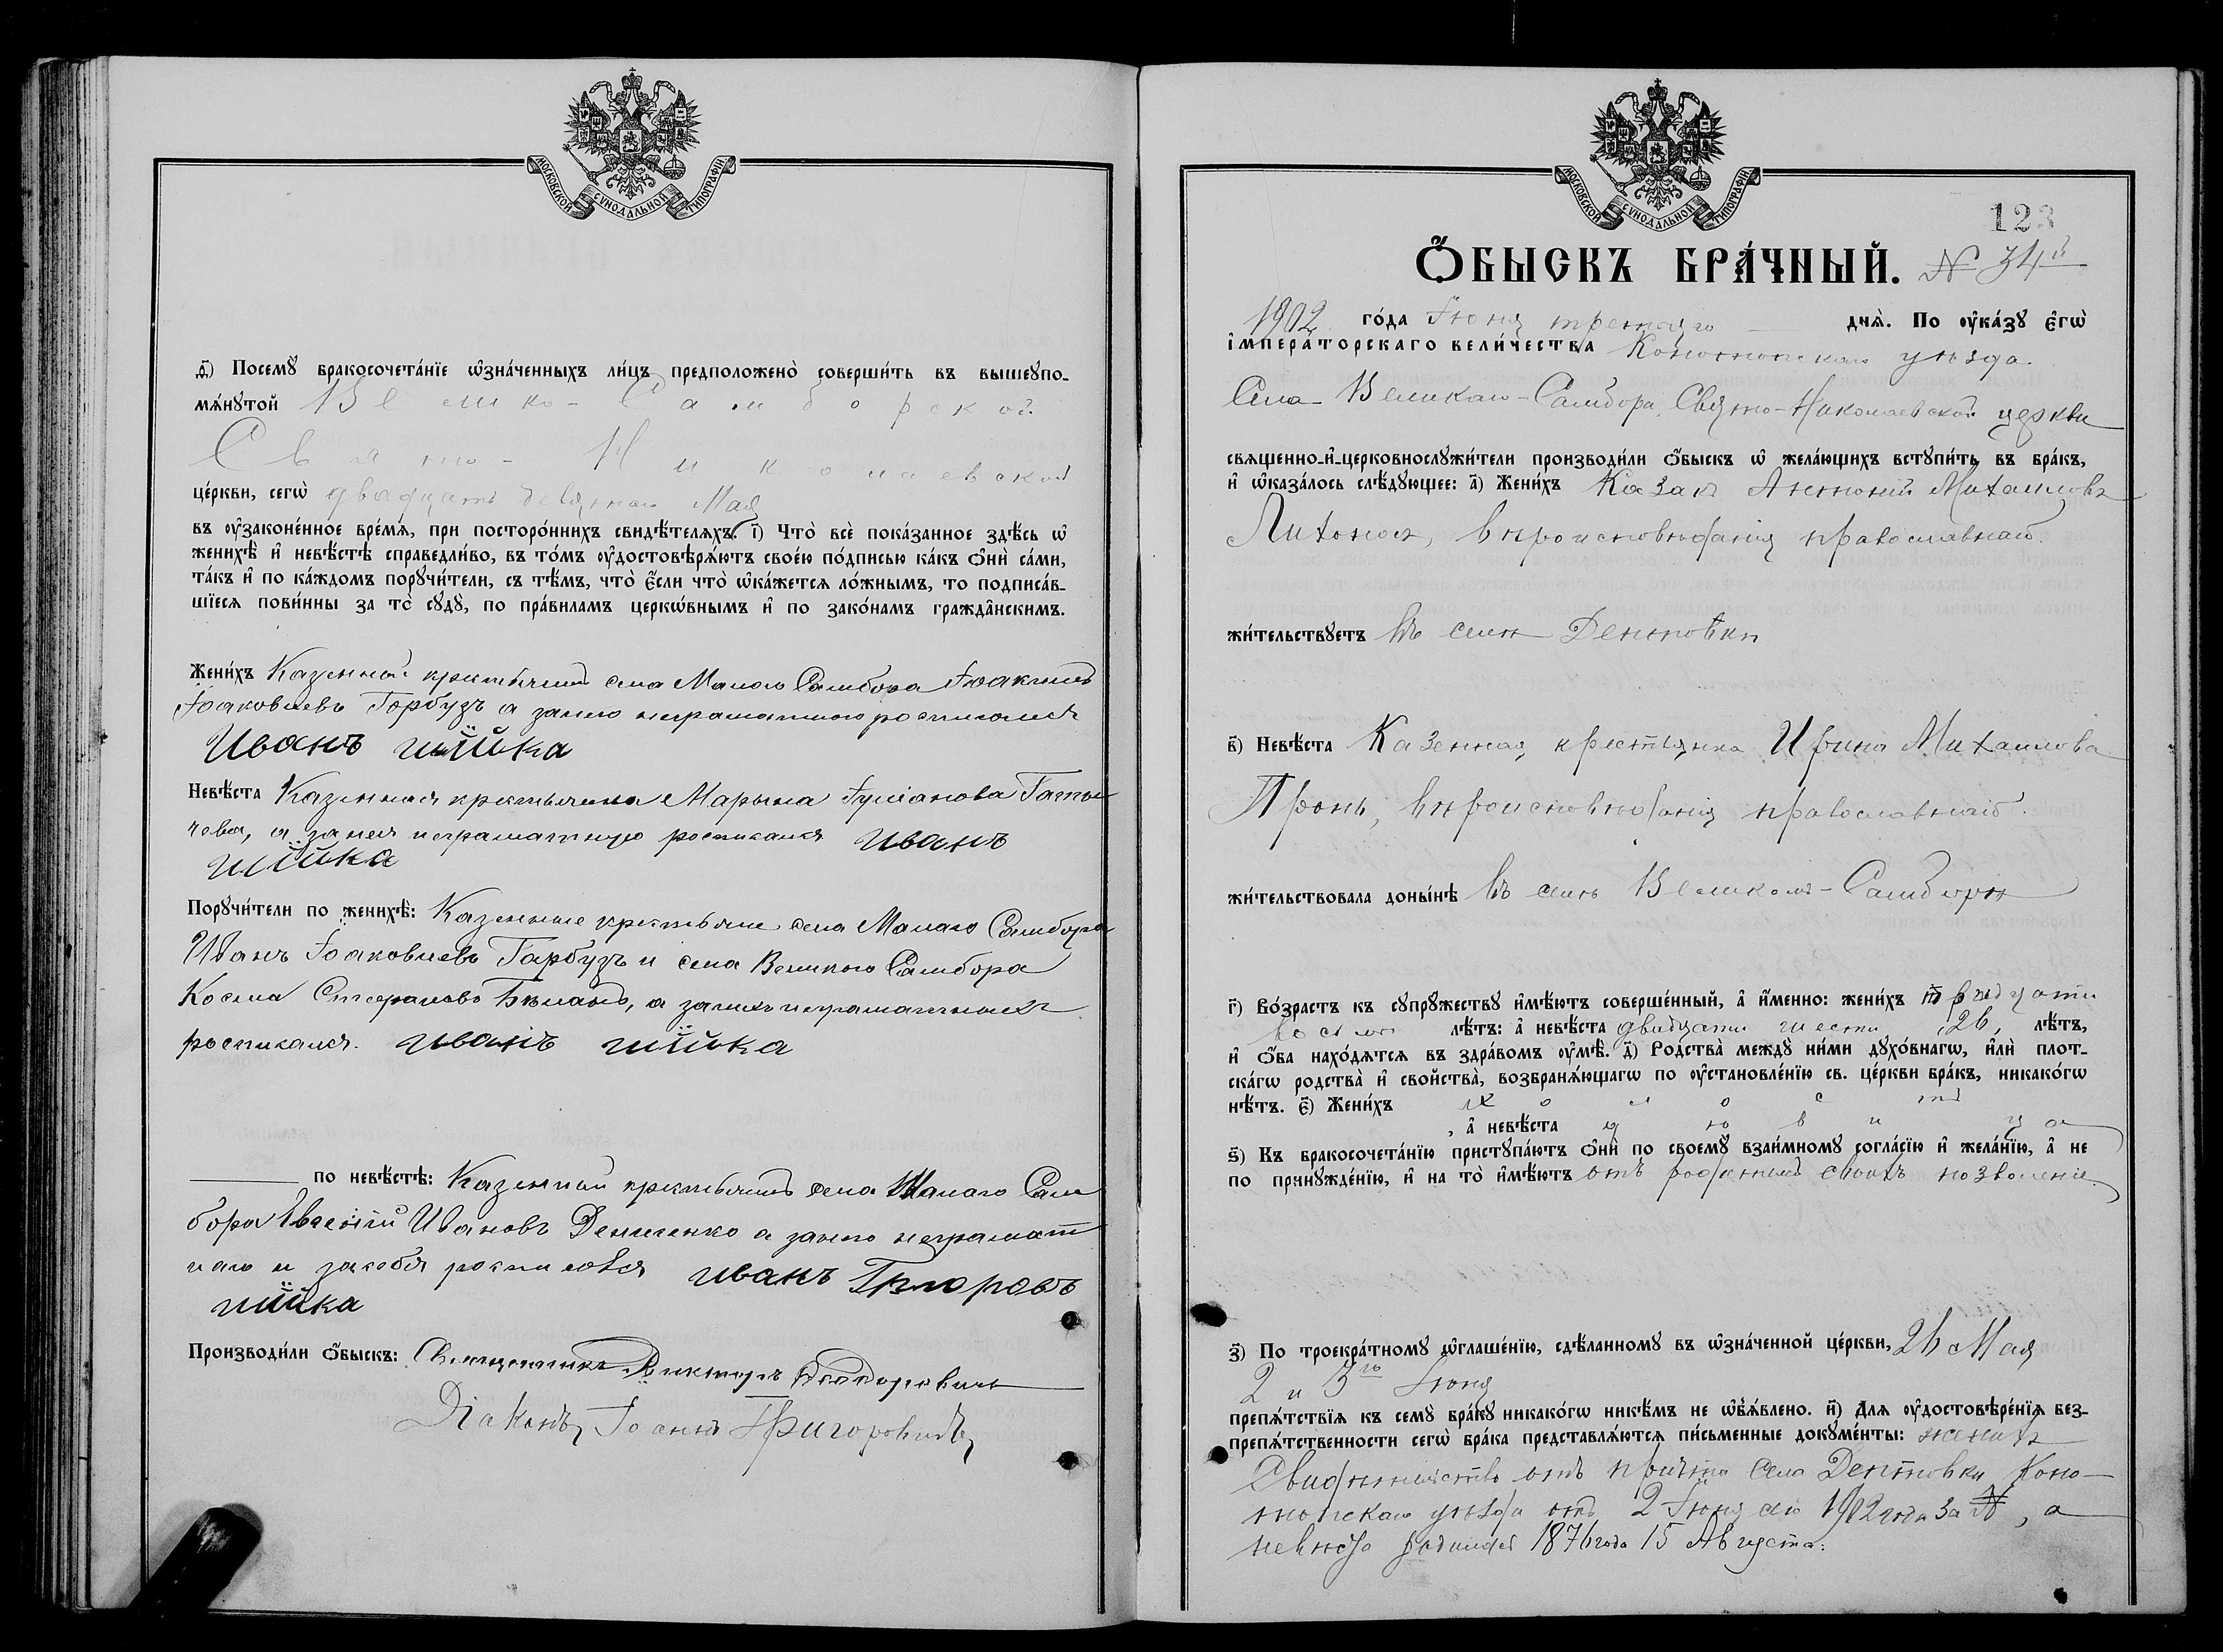 МОСКОВСКОЙ СУНОДАЛЬНОЙ ТИПОГРАФІИ
д҃) Посемꙋ̀ бракосочета́нїе ѡ҆зна́ченныхъ ли́цъ предположено̀ соверши́ть въ вышеꙋпо-
мѧ́нꙋтой Велико-Самборской
Свято-Николаевской
це́ркви, сегѡ̀ двадцать девятаго Мая
въ ᲂу҆законе́нное вре́мѧ, при посторо́ннихъ свидѣ́телѧхъ. і҃) Что̀ всѐ пока́занное здѣ́сь ѡ҆
женихѣ̀ и҆ невѣ́стѣ справедли́во, въ то́мъ ᲂу҆достовѣрѧ́ютъ свое́ю по́дписью ка́къ ѻ҆нѝ са́ми,
та́къ и҆ по ка́ждомъ порꙋчи́тели, съ тѣ́мъ, что̀ є҆́сли что̀ ѡ҆ка́жетсѧ ло́жнымъ, то подписа́в-
шїесѧ пови́нны за то̀ сꙋдꙋ̀, по пра́виламъ церкѡ́внымъ и҆ по зако́намъ гражда̂нскимъ.
Жени́хъ Казенный крестьянинъ села Малого Самбора Іоакимъ
Іоаковлевъ Горбузъ а занего неграматного росписался
Иванъ шійка
Невѣ́ста Казенная крестьянка Марьна Іуліанова Гатьи
чева, а занея неграматную росписался Иванъ
шійка
Порꙋчи́тели по женихѣ̀: Казенные крестьяне села Малаго Самбора
Иванъ Іоаковлевъ Гарбузъ и села Великого Самбора
Косма Стефановъ Бѣланъ, а заних неграматных
росписался. Иванъ шійка
по невѣ́стѣ: Казенный крестьянинъ села Малаго Сам
бора Евсевій Ивановъ Денисенко а занего неграмат
наго и засебя росписался Иванъ
шійка
Производи́ли ѻ҆́быскъ: Священникъ Викторъ
Діаконъ Іоаннъ Григоровичъ
МОСКОВСКОЙ СУНОДАЛЬНОЙ ТИПОГРАФІИ
123
Ѻ҆́БЫСКЪ БРА́ЧНЫЙ. № 34й
1902 го́да Іюня третяго днѧ̀. По ᲂу҆ка́зꙋ є҆гѡ̀
і҆мпера́торскаго вели́чества Конотопскаго уѣзда
Села Великаго-Самбора, Свято-Николаевской церкви
свѧщенно-и҆-церковнослꙋжи́тели производи́ли ѻ҆́быскъ ѡ҆ жела́ющихъ встꙋпи́ть въ бра́къ,
и҆ ѡ҆каза́лось слѣ́дꙋющее: а҃) Жени́хъ Казакъ Антоній Михаиловъ
Лихоносъ, вѣроисповѣданія православнаго.
жи́тельствꙋетъ въ селѣ Дептовки
в҃) Невѣ́ста Казенная крестьянка Ирина Михаилова
Пронь, вѣроисповѣданія православнаго.
жи́тельствовала доны́нѣ въ селѣ Великомъ-Самборѣ
г҃) Во́зрастъ къ сꙋпрꙋ́жествꙋ и҆мѣ́ютъ соверше́нный, а҆ и҆́менно: жени́хъ тридцати
восьми лѣ́тъ: а҆ невѣ́ста двадцати шести 26, лѣ́тъ,
и҆ ѻ҆́ба нахо́дѧтсѧ въ здра́вомъ ᲂу҆мѣ̀. д҃) Родства̀ междꙋ̀ ни́ми дꙋхо́внагѡ, и҆лѝ плот-
ска́гѡ родства̀ и҆ сво́йства̀, возбранѧ́ющагѡ по ᲂу҆становле́нїю св. це́ркви бра́къ, никако́гѡ
нѣ́тъ. є҃) Жени́хъ холостъ
, а҆ невѣ́ста дѣвица
ѕ҃) Къ бракосочета́нїю пристꙋпа́ютъ ѻ҆нѝ по своемꙋ̀ взаи́мномꙋ согла́сїю и҆ жела́нїю, а҆ не
по принꙋжде́нїю, и҆ на то̀ и҆мѣ́ютъ отъ родителей своихъ позволеніе.
з҃) По троекра́тномꙋ ѡ҆глаше́нїю, сдѣ́ланномꙋ въ ѡ҆зна́ченной це́ркви, 26 Мая
2 и 3го Іюня
препѧ́тствїѧ къ семꙋ̀ бра́кꙋ никако́гѡ никѣ́мъ не ѡ҆бъѧ́влено. и҃) Длѧ ᲂу҆достовѣре́нїѧ без-
препѧ́тственности сегѡ̀ бра́ка представлѧ́ютсѧ пи́сьменные докꙋме́нты: жениха
Свидѣтельство отъ причта села Дептовки Коно-
топскаго уѣзда отъ 2 Іюня сего 1902 года за №, а
невѣста родилась 1876 года 15 Августа.